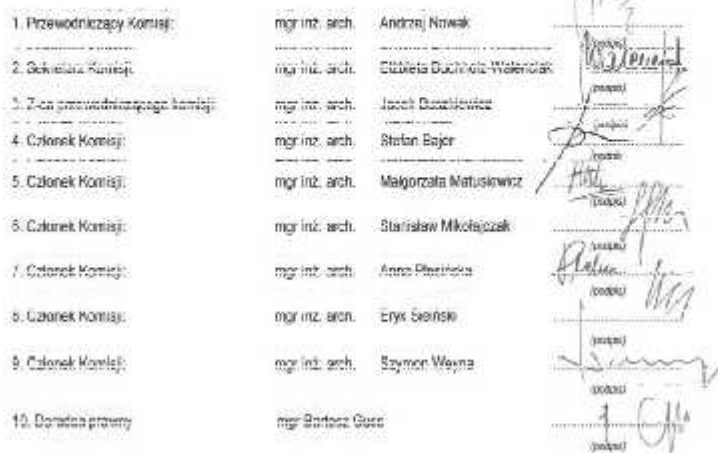 1. Przewodniczący Komisji: mgr inż. arch. Andrzej Nowak
(podpis)
2. Sekretarz Komisji: mgr inż. arch. Elżbieta Buchholz-Walenciak
(podpis)
3. Z-ca przewodniczącego komisji: mgr inż. arch. Jacek
(podpis)
4. Członek Komisji: mgr inż. arch. Stefan Bajer
(podpis)
5. Członek Komisji: mgr inż. arch. Małgorzata Matusiewicz
(podpis)
6. Członek Komisji: mgr inż. arch. Stanisław Mikołajczak
(podpis)
7. Członek Komisji: mgr inż. arch. Anna
(podpis)
8. Członek Komisji: mgr inż. arch. Eryk Sieiński
(podpis)
9. Członek Komisji: mgr inż. arch. Szymon Weyna
(podpis)
10. Doradca prawny mgr Bartosz Guss
(podpis)